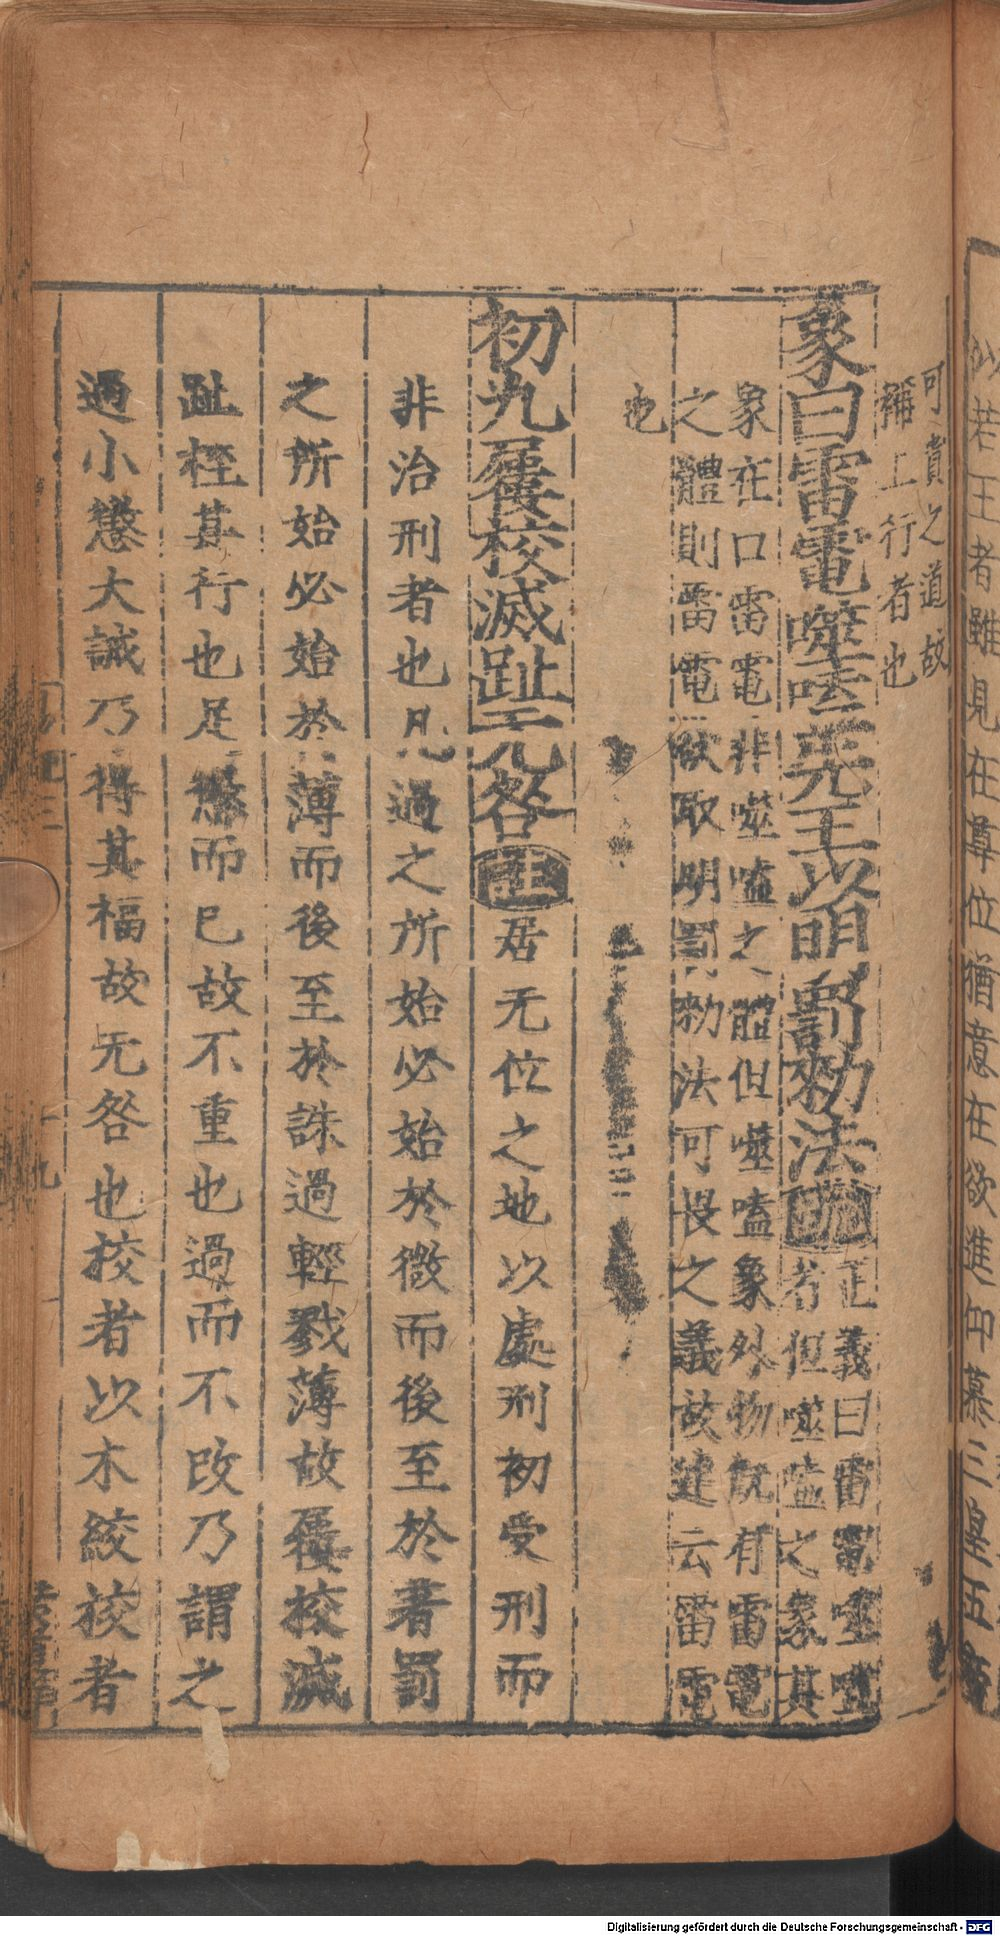 可貴之道故
稱上行者也
象曰雷電噬嗑先王以明罰勑法疏
正義曰雷電噬嗑
者但噬嗑之象其
象在口雷電非噬嗑之體但噬嗑象外物既有雷電
之體則雷電欲取明罰勑法可畏之義故連云雷電
也
初九屨校滅趾无咎注居无位之地以處刑初受刑而
非治刑者也凡過之所始必始於微而後至於著罰
之所始必始於薄而後至於誅過輕戮薄故屨校滅
趾桎其行也足懲而已故不重也過而不改乃謂之
過小懲大誡乃得其福故无咎也校者以木絞校者
Digitalisierung gefördert durch die Deutsche Forschungsgemeinschaft - DFG